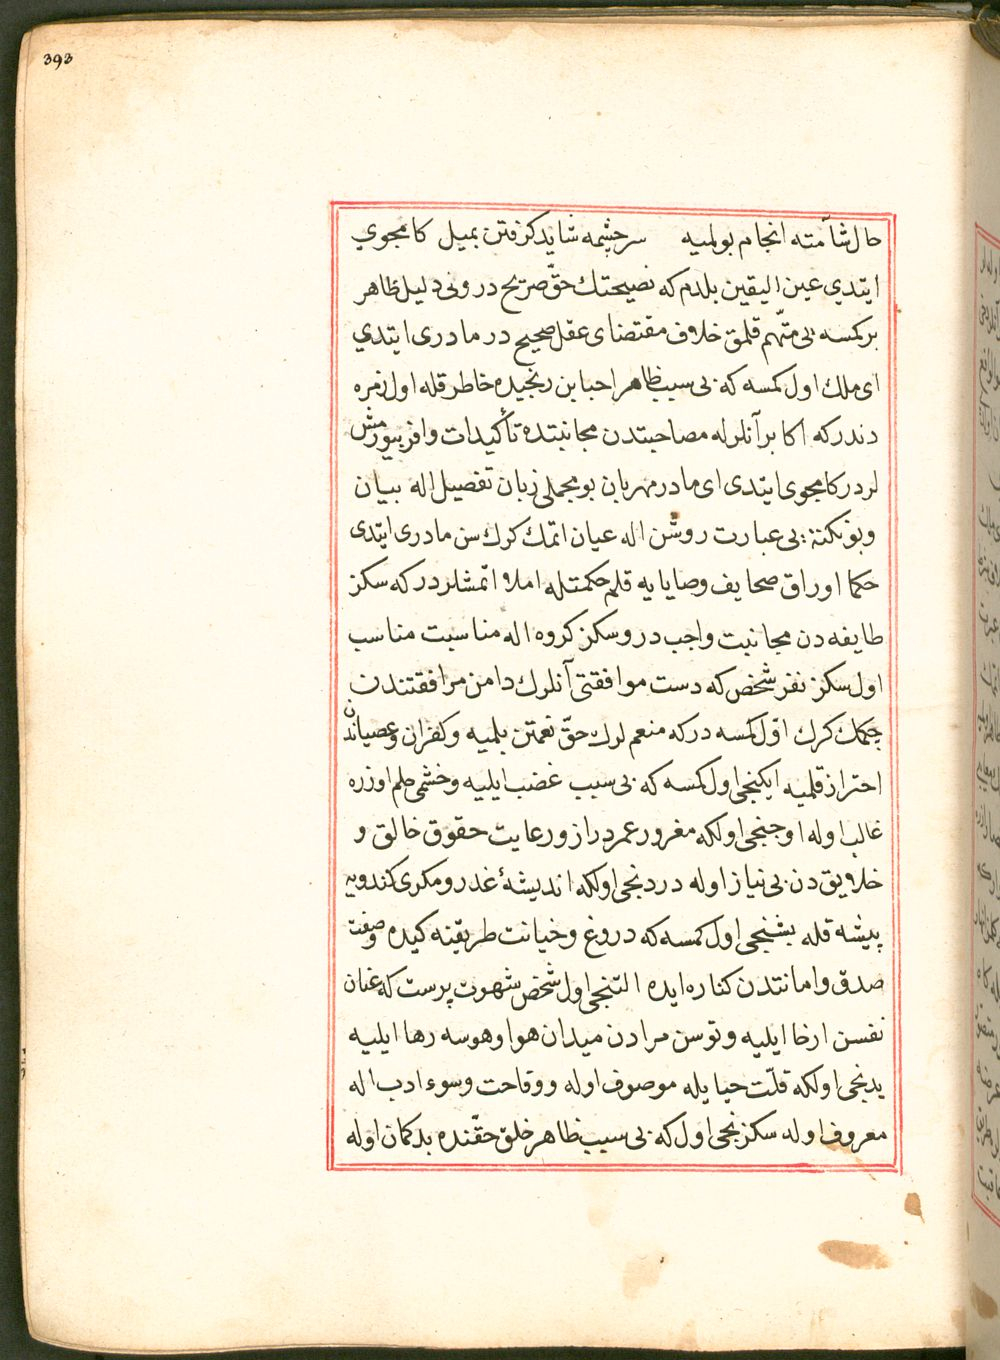 393
حال شآمته انجام بولميه سر چشمه شايد كرفتن بميل كامجوي
ايتدي عين اليقين بلدم كه نصيحتك حقّ صريح در وبى دليل ظاهر
بر كمسه يى متّهم قلمق خلاف مقتضاى عقل صحيح در مادرى ايتدي
اى ملك اول كمسه كه بى سبب ظاهر احبابن رنجيده خاطر قله اول زمره
دندر كه اكابر آنلرله مصاحبتدن مجانبتده تأكيدات وافر بيورمش
لردر كامجوى ايتدى اى مادر مهربان بو مجملى زبان تفصيل اله بيان
وبو نكته يى عبارت روشن اله عيان اتمك كرك سن مادرى ايتدى
حكما اوراق صحايف وصايايه قلم حكمتله املا اتمشلردر كه سكز
طايفه دن مجانبت واجب در وسكز كروه اله مناسبت مناسب
اول سكز نفر شخص كه دست موافقتى آنلرك دامن مرافقتندن
چكمك كرك اوّل كمسه در كه منعم لرك حقّ نعمتن بلميه وكفران وعصياندن
احتراز قلميه ايكنجى اول كمسه كه بى سبب غضب ايليه وخشمى حلم اوزره
غالب اوله اوجنجى اولكه مغرور عمر دراز ورعايت حقوق خالق و
خلايق دن بى نياز اوله دردنجى اولكه انديشهٔ غدر ومكرى كندويه
پيشه قله بشنجى اول كمسه كه دروغ وخيانت طريقته كيده وصفت
صدق وامانتدن كناره ايده التنجى اول شخص شهوت پرست كه عنان
نفسن ارخا ايليه وتوسن مرادن ميدان هوا وهوسه رها ايليه
يدنجى اولكه قلّت حيا يله موصوف اوله ووقاحت وسوء ادب اله
معروف اوله سكزنجى اول كه بى سبب ظاهر خلق حقّنده بدكمان اوله